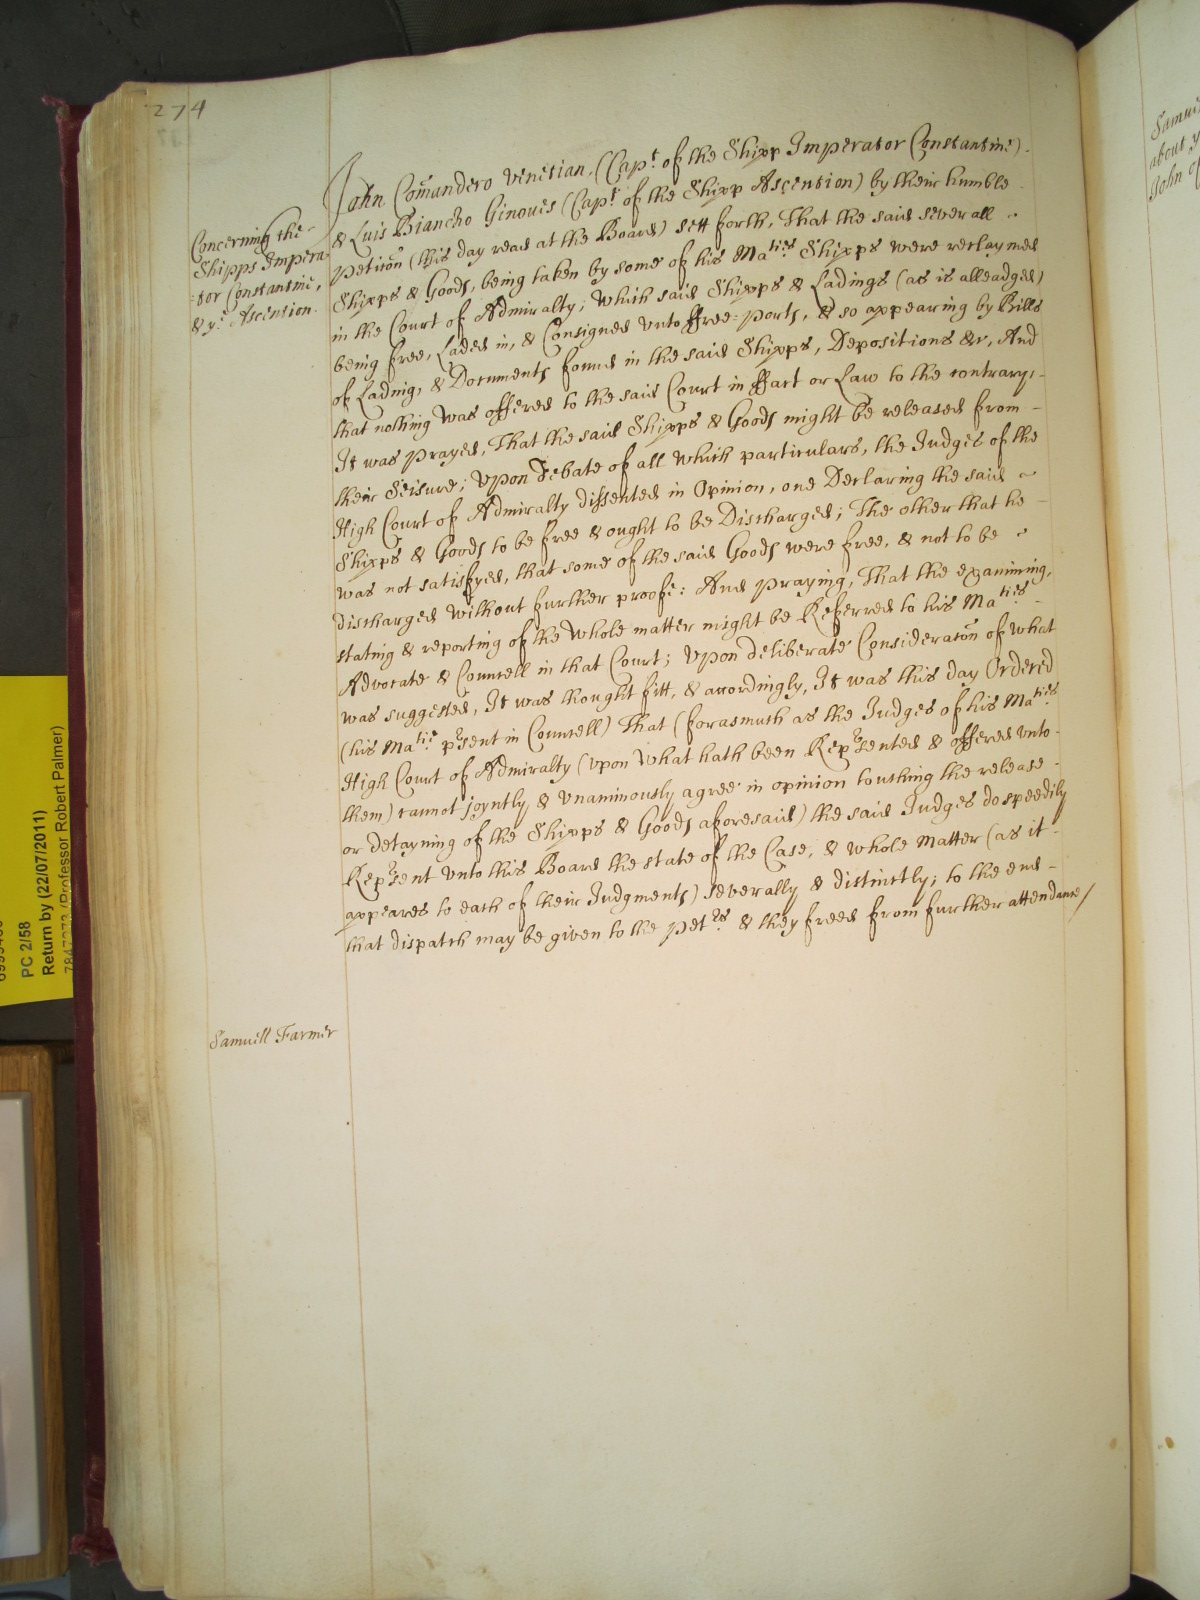 274
Concerning the
Shipps Impera
:tor Constantine,
& yᵉ Ascention.
John Com̃undero Venetian, (Capᵗ of the Shipp Imperator Constantine)
& Luis Biancho Ginoues (Capᵗ of the Shipp Ascention) by their humble
petic̃on (this day read at the Board) sett forth, That the said severall
Shipps & Goods, being taken by some of his Maᵗⁱᵉˢ Shipps were reclaymed
in the Court of Admiralty; Which said Shipps & Ladings (as is alleadged)
being free, Laded in, & Consigned vnto ffree=ports, & so appearing by Bills
of Lading, & Documents found in the said Shipps, Depositions &c, And
that nothing was offered to the said Court in ffact or Law to the contrary:
It was prayed, That the said Shipps & Goods might be released from
their Seisure; Vpon Debate of all which particulars, the Judges of the
High Court of Admiralty dissented in Opinion, one Declaring the said
Shipps & Goods to be free & ought to be Discharged; The other that he
was not satisfyed, that some of the said Goods were free, & not to be
discharged without further proofe: And praying, That the examining,
stating & reporting of the whole matter might be Referred to his Maᵗⁱᵉˢ
Advocate & Councell in that Court; Vpon deliberate Considerac̃on of what
was suggested, It was thought fitt, & accordingly, It was this day Ordered
(his Maᵗⁱᵉ pʳsent in Councell) That (forasmuch as the Judges of his Maᵗⁱᵉˢ
High Court of Admiralty (vpon what hath been Repʳsented & offered vnto
them) cannot joyntly & vnaminously agree in opinion touching the release
or detayning of the Shipps & Goods aforesaid) the said Judges do speedily
Repʳsent vnto this Board the state of the Case, & whole Matter (as it
appeares to each of their Judgments) severally & distinctly; to the end
that dispatch may be given to the petʳˢ & they freed from further attendance/
Samuell Farmer
PC 2/58
Return by (22/07/2011)
(Professor Robert Palmer)
Samu
about y
John of